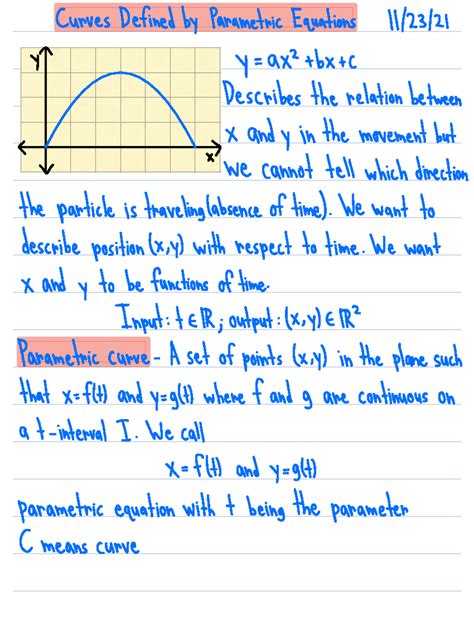 Curves Defined by Parametric Equations 11/23/21
y
x
y = ax² + bx + c
Describes the relation between
x and y in the movement but
we cannot tell which direction
the particle is traveling (absence of time). We want to
describe position (x,y) with respect to time. We want
x and y to be functions of time.
Input: t ∈ ℝ; output: (x,y) ∈ ℝ²
Parametric curve - A set of points (x,y) in the plane such
that x=f(t) and y=g(t) where f and g are continuous on
a t-interval I. We call
x = f(t) and y=g(t)
parametric equation with t being the parameter
C means curve